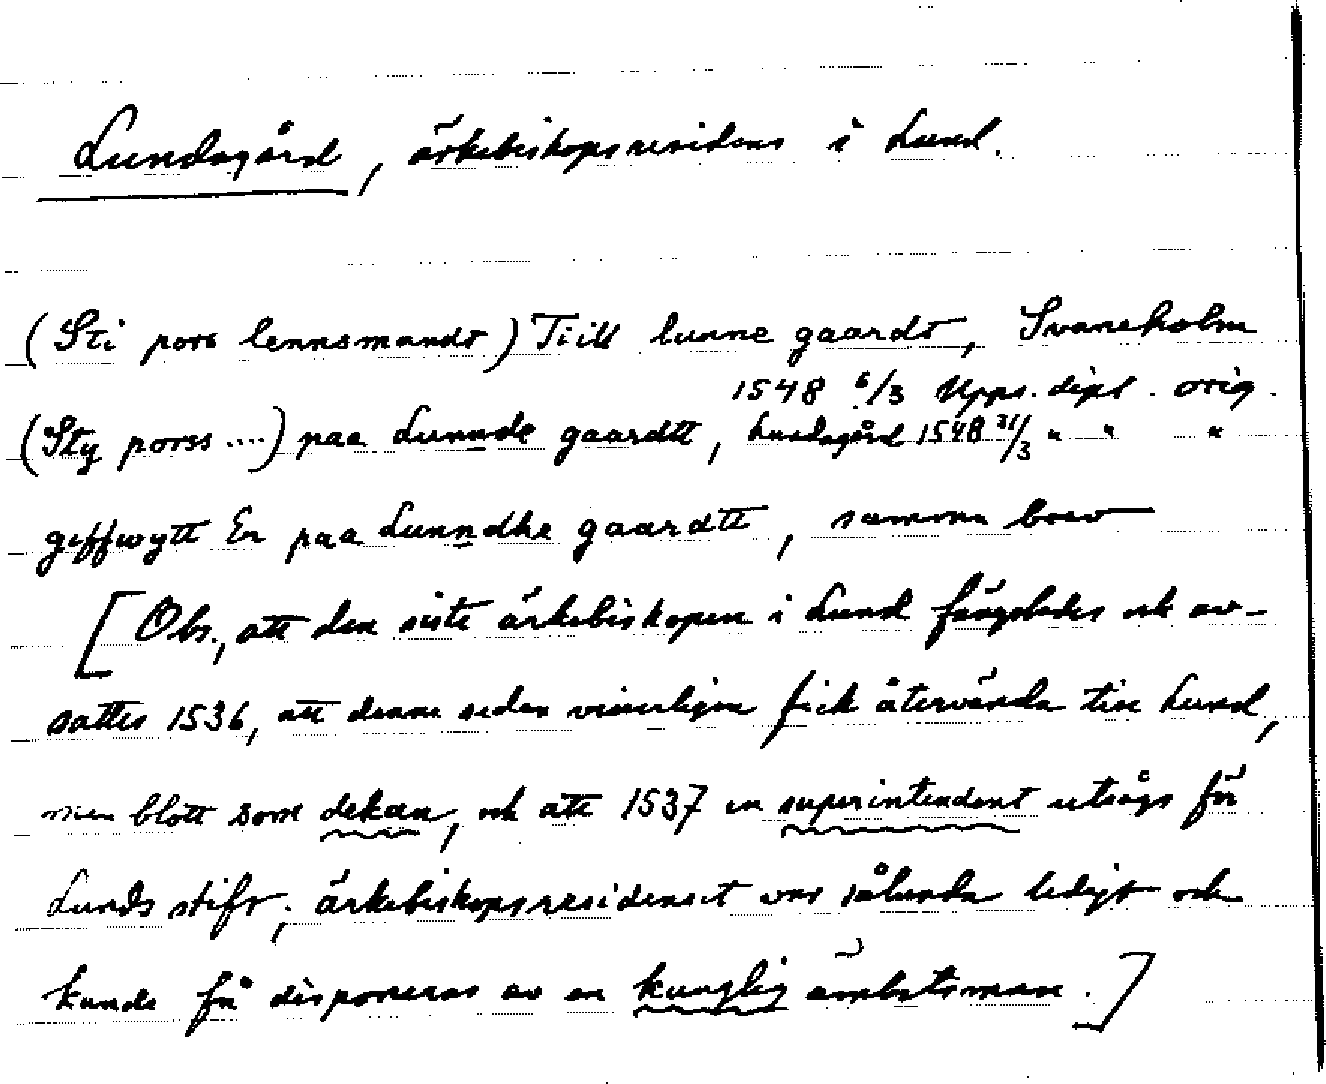 Lundagård, ärkebiskopsresidens i Lund.
(Sti pors lennsmandt) Tiill lunne gaardt, Svaneholm
1548 6/3 Upps. dipl. orig.
(Sty porss ....) paa Lunnde gaardtt, Lundagård 1548 31/3 " " "
geffwytt Er paa Lunndhe gaardtt, samma brev
[Obs., att den siste ärkebiskopen i Lund fängslades och av-
sattes 1536, att denne sedan visserligen fick återvända till Lund,
men blott som dekan, och att 1537 en superintendent utsågs för
Lunds stift; ärkebiskopsresidenset var sålunda ledigt och
kunde få disponeras av en kunglig ämbetsman.]